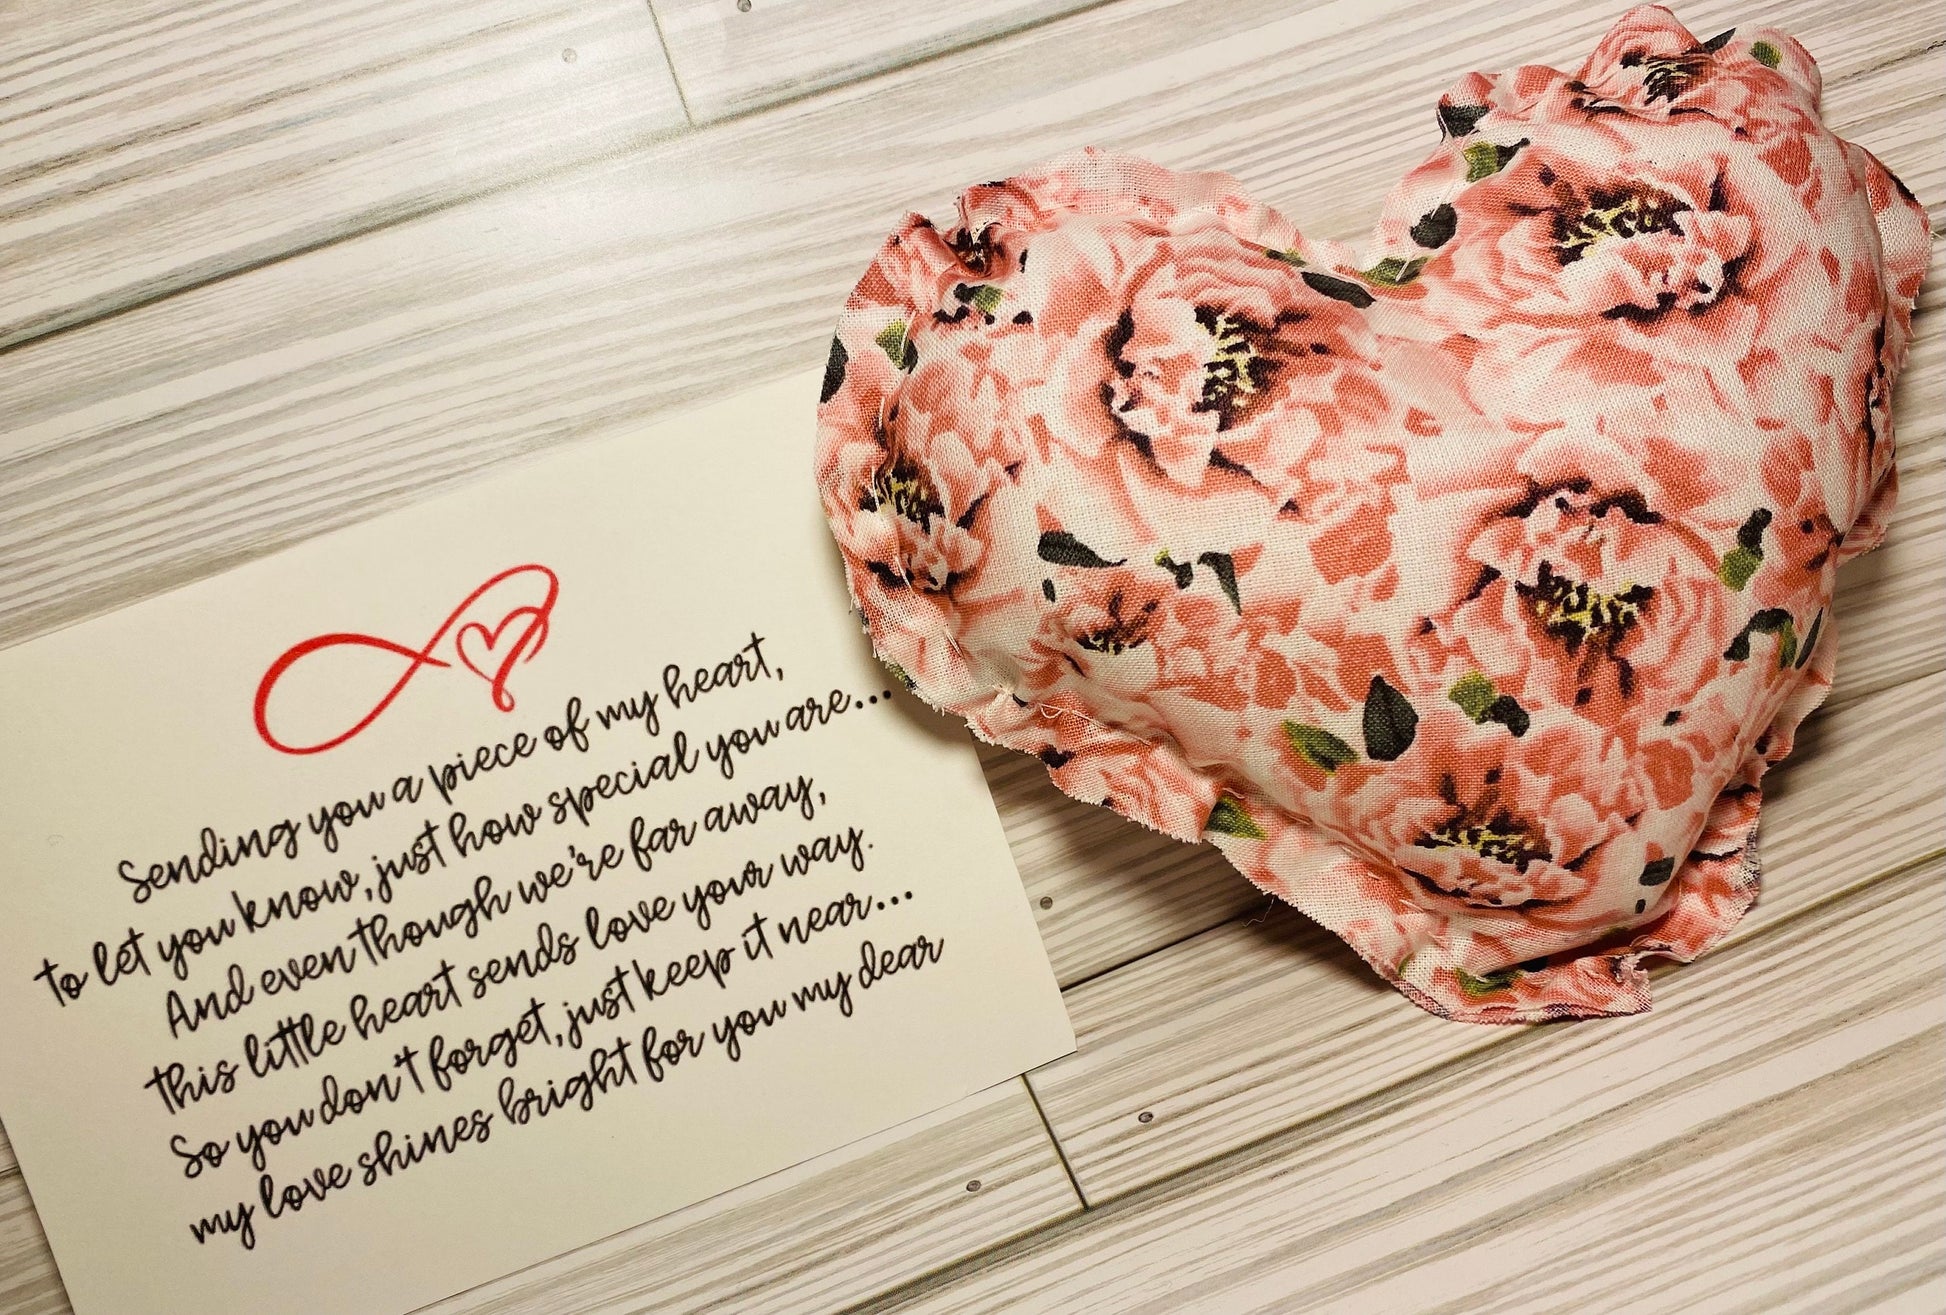 Sending you a piece of my heart,
to let you know, just how special you are...
And even though we're far away,
this little heart sends love your way.
So you don't forget, just keep it near...
my love shines bright for you my dear